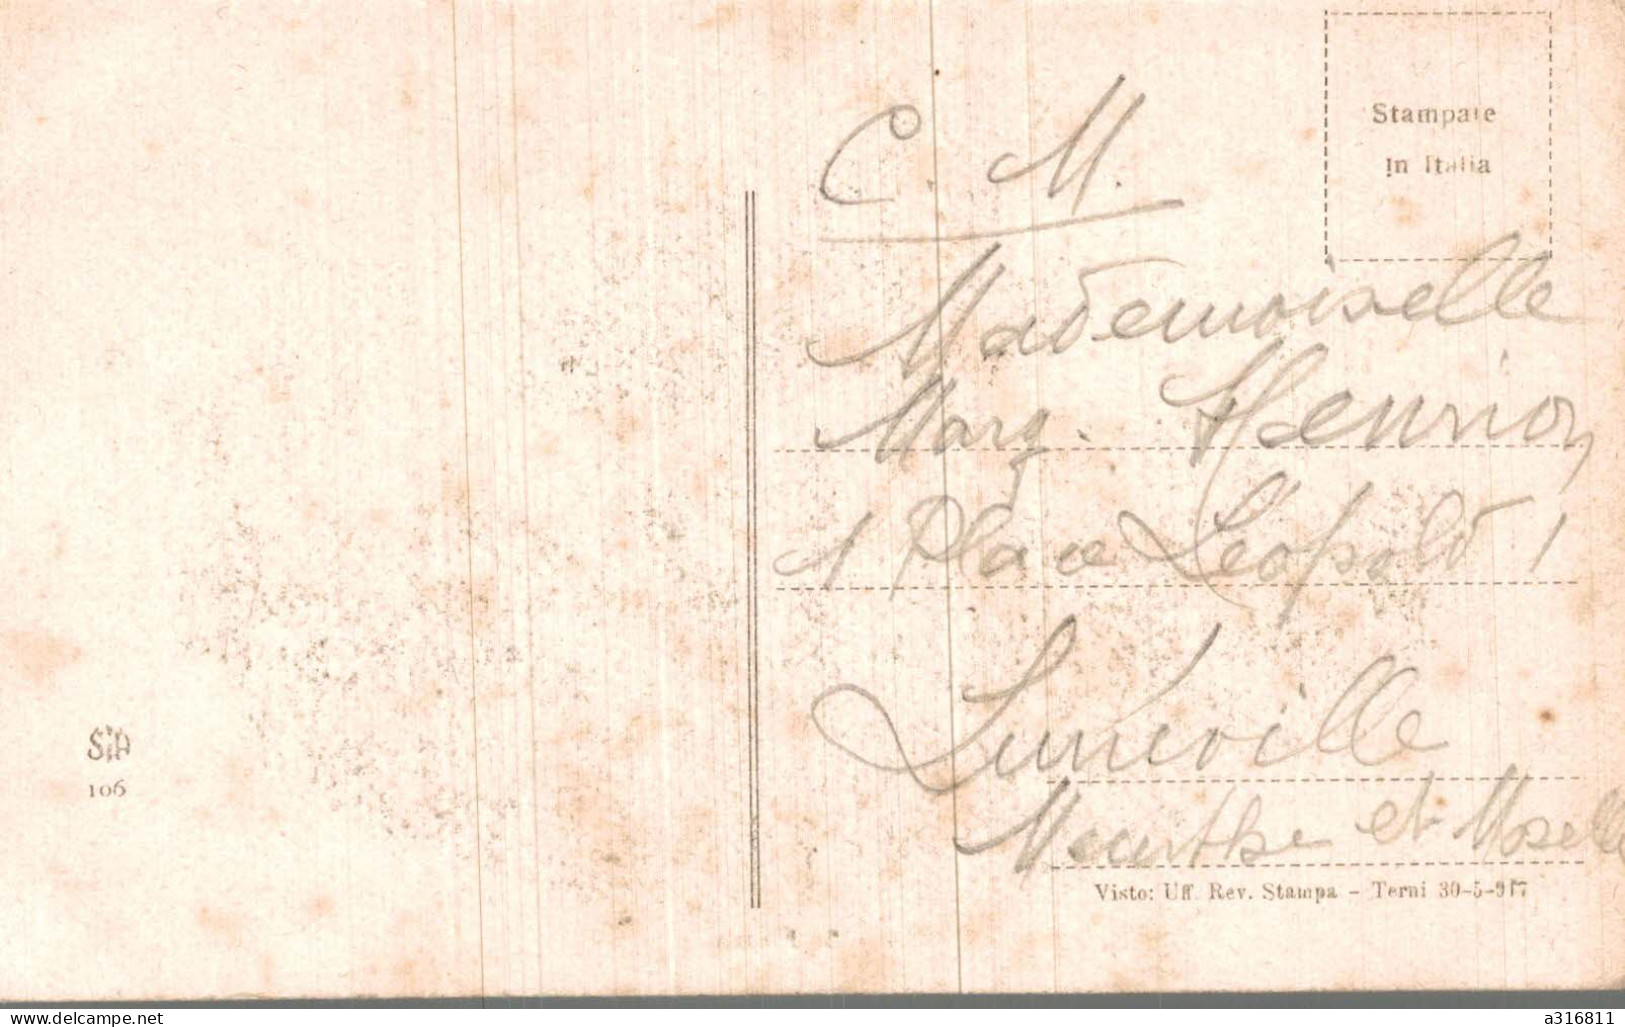 Stampate
in Italia
C. M.
Mademoiselle
Marg. Henrion
1 Place Léopold 1
Lunéville
Meurthe et Moselle
SIA
106
Visto: Uff. Rev. Stampa - Terni 30-5-917
delcampe.net
a316811